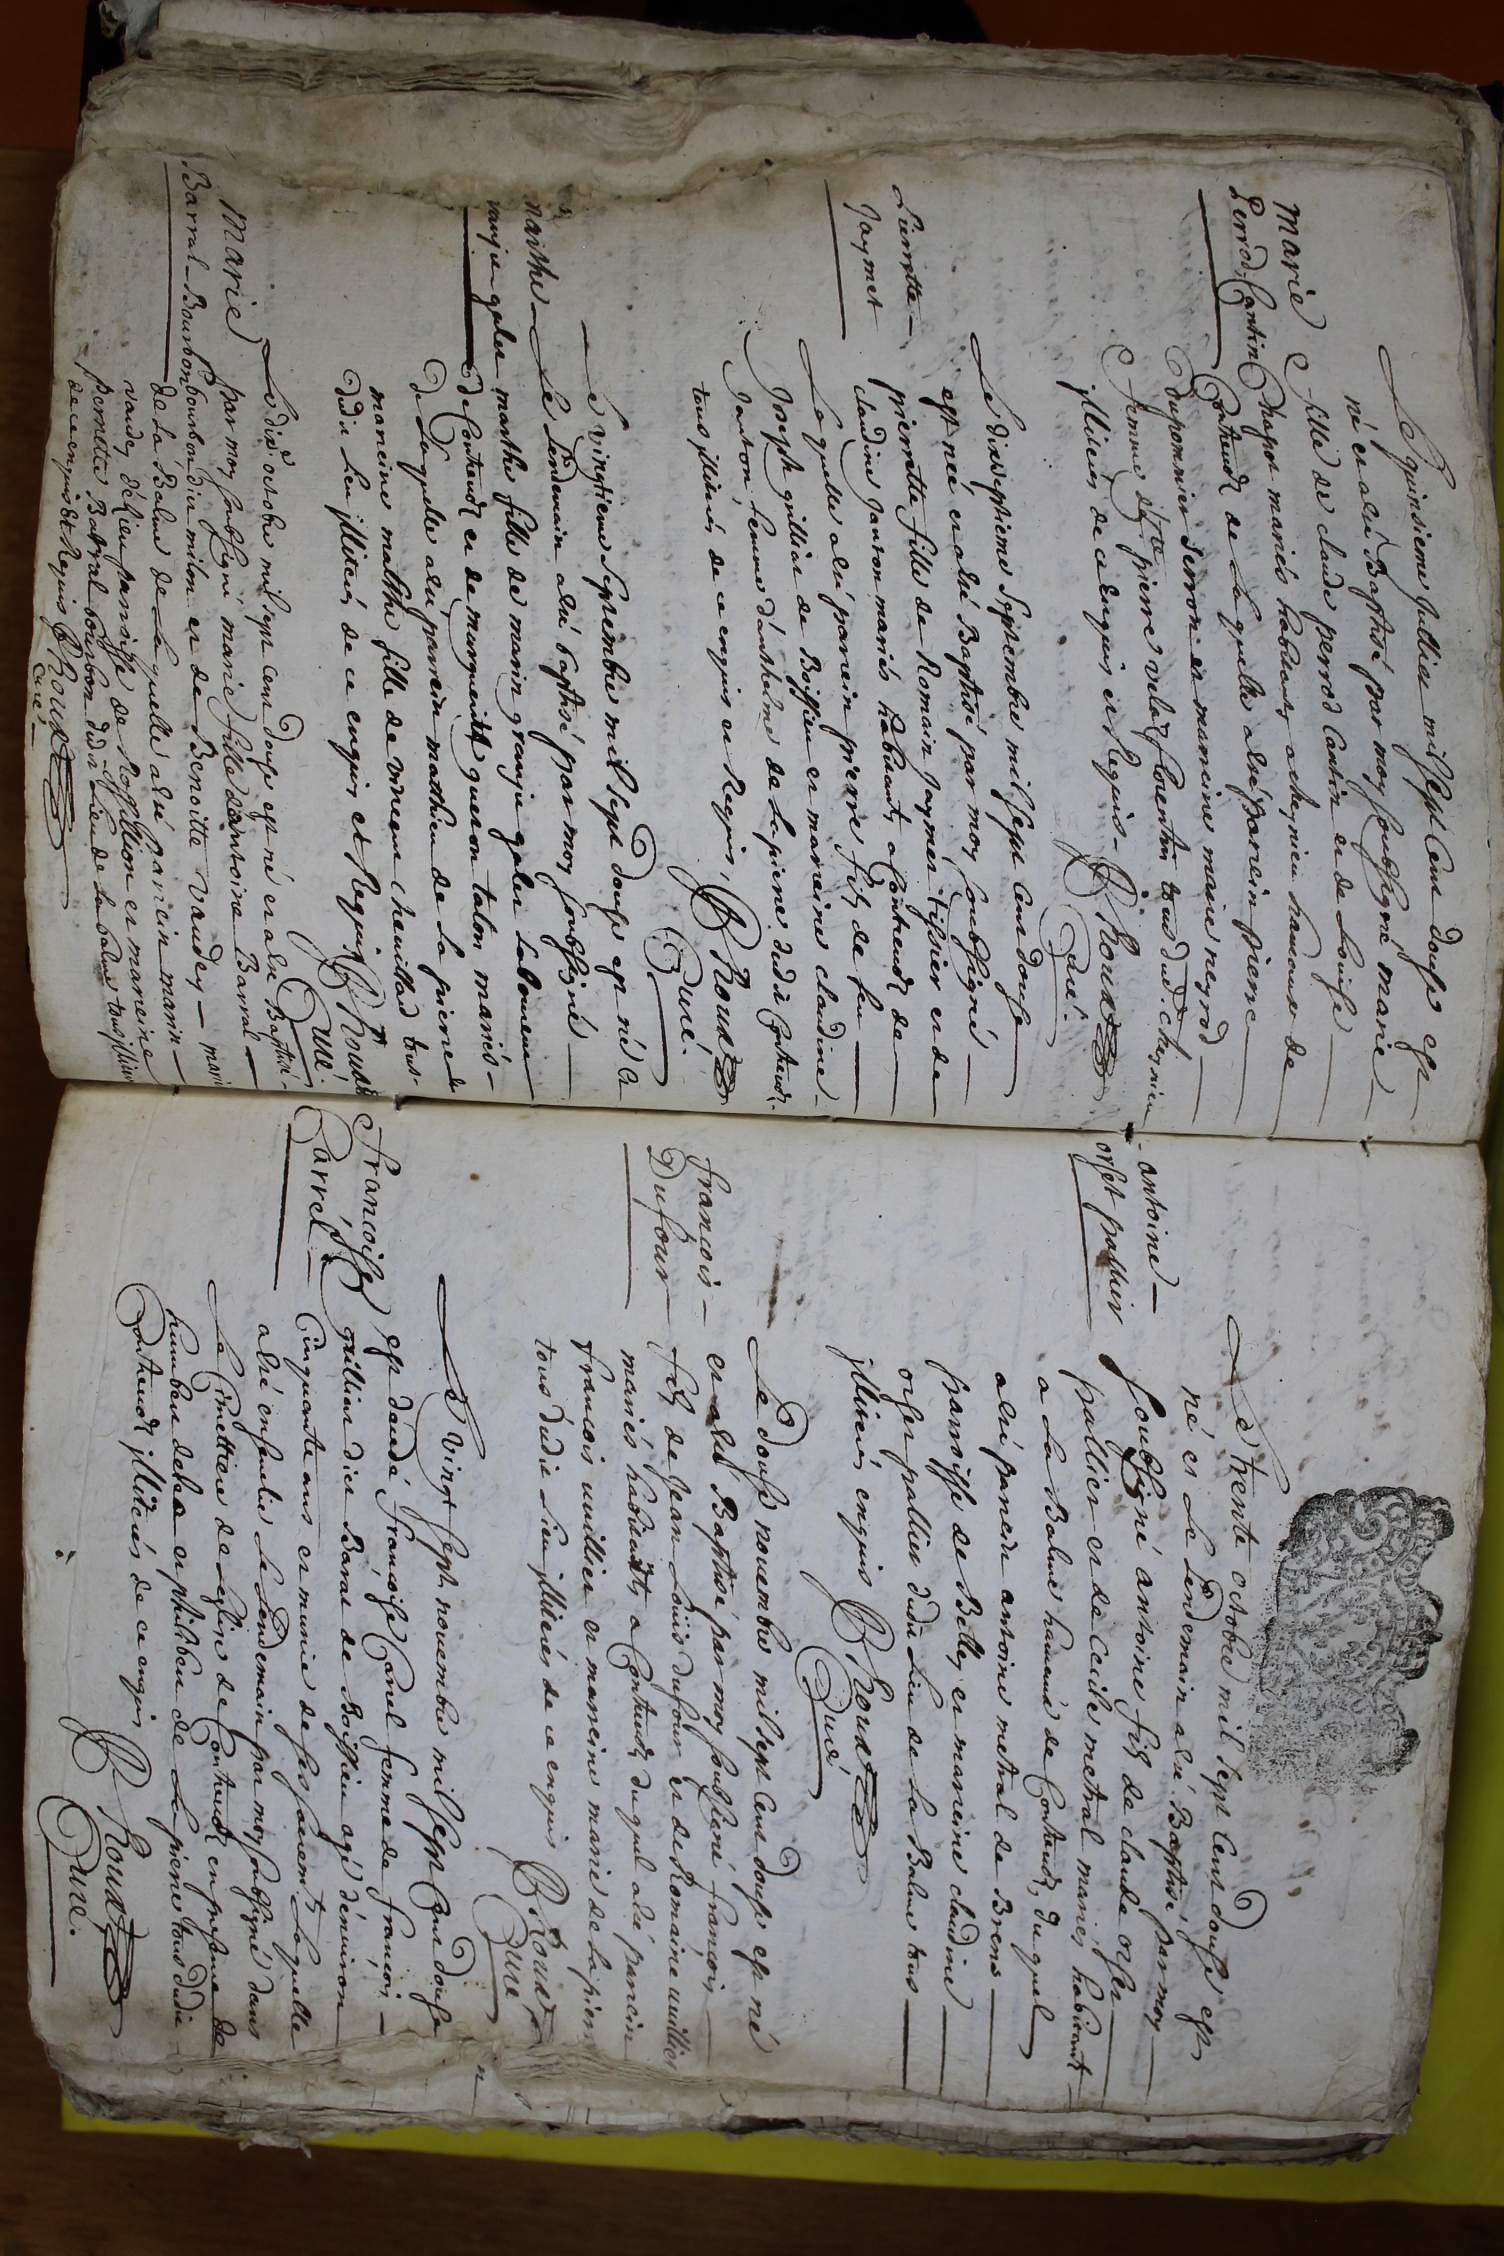 Marie
Perrod Cantin
Le quinsieme Jullies mil sept Cent douse est
né et a été Baptisé par moy soubsigné marie
fille de claude perrod Cantin et de Louise
Chapot mariés habitants a cheynieu hameau de
Contrevoz de la quelle a été parrein pierre
dupommier serron et marreine marie neyrod
femme de pierre vela florentin tous dud. cheynieu
illiterés de ce enquis et Requis - B Roux
Curé.
Pierrette
Jaymet
Le dixseptieme Septembre mil sept Cent douse
est neé et a été Baptisé par moy soubsigné
pierrette fille de Romain Jaymet tissier et de
claudine Janton mariés habitants a Contrevoz de
Laquelle a été parrein pierre fils de feu
Joseph grilliet de Boissieu et marreine claudine
Janton femme d'anthelme de lapierre dudit Contrevoz
tous illiterés de ce enquis et Requis, B Roux
Curé.
marthe
gauje galex
Le vingtieme Septembre mil sept douse est né et
Le Lendemain a été baptisé par moy soubsigné
marthe fille de marin grauje galex
de Contrevoz et de marguerite gueton talon mariés
De Laquelle a été parrein matthieu de la pierre
marreine marthe fille de chevillard tous
dudit Lieu illiterés de ce enquis et Requis B Roux
Curé.
Marie
Barral-Bourbon
Le dix octobre mil sept cent douse est né et a été Baptisé
par moy soubsigné marie fille d'antoine Barral
bourbon dict milon et de Benoitte vaudey mariés
de la Balme de Laquelle a été parrein marin
vaudey de parroisse de Rossillion et marreine
pernette Barral bourbon dudit lieu de la balme tous illiterés
de ce enquis et Requis B Roux
Curé
antoine
orset pallier
Le trente octobre mil sept Cent douse est
né et Le Lendemain a été Baptisé par moy
soubsigné antoine fils de claude orset
pallier et de Cecile metral mariés habitants
a La Balme hameau de Contrevoz, du quel
a été parrein antoine metral de Brens
parroisse de Belley et marreine claudine
orset pallier dudit Lieu de La Balme tous
illiterés enquis B Roux
Curé
françois
Dufour
Le douse novembre mil sept Cent douse est né
et a été Baptisé par moy soubsigné françois
fils de Jean Louis dufour et de Romaine vuillier
mariés habitants a Contrevoz duquel a été parrein
francois vuillier et marreine marie de Lapierre
tous dudit Lieu illiterés de ce enquis B Roux
Curé
francoise
Carrel
Le vingt sept novembre mil sept Cent douse
est décédé francoise Carrel femme de francois
grilliet dict Barat de Boissieu agé d'environ
Cinquante ans et munie de ses sacrements Laquelle
a été ensevelie Le Lendemain par moy soubsigné dans
Le Cimettiere de Leglise de Contrevoz en presence de
humbert et philibert de Lapierre tous dudit
Contrevoz illiterés de ce enquis B Roux
Curé.